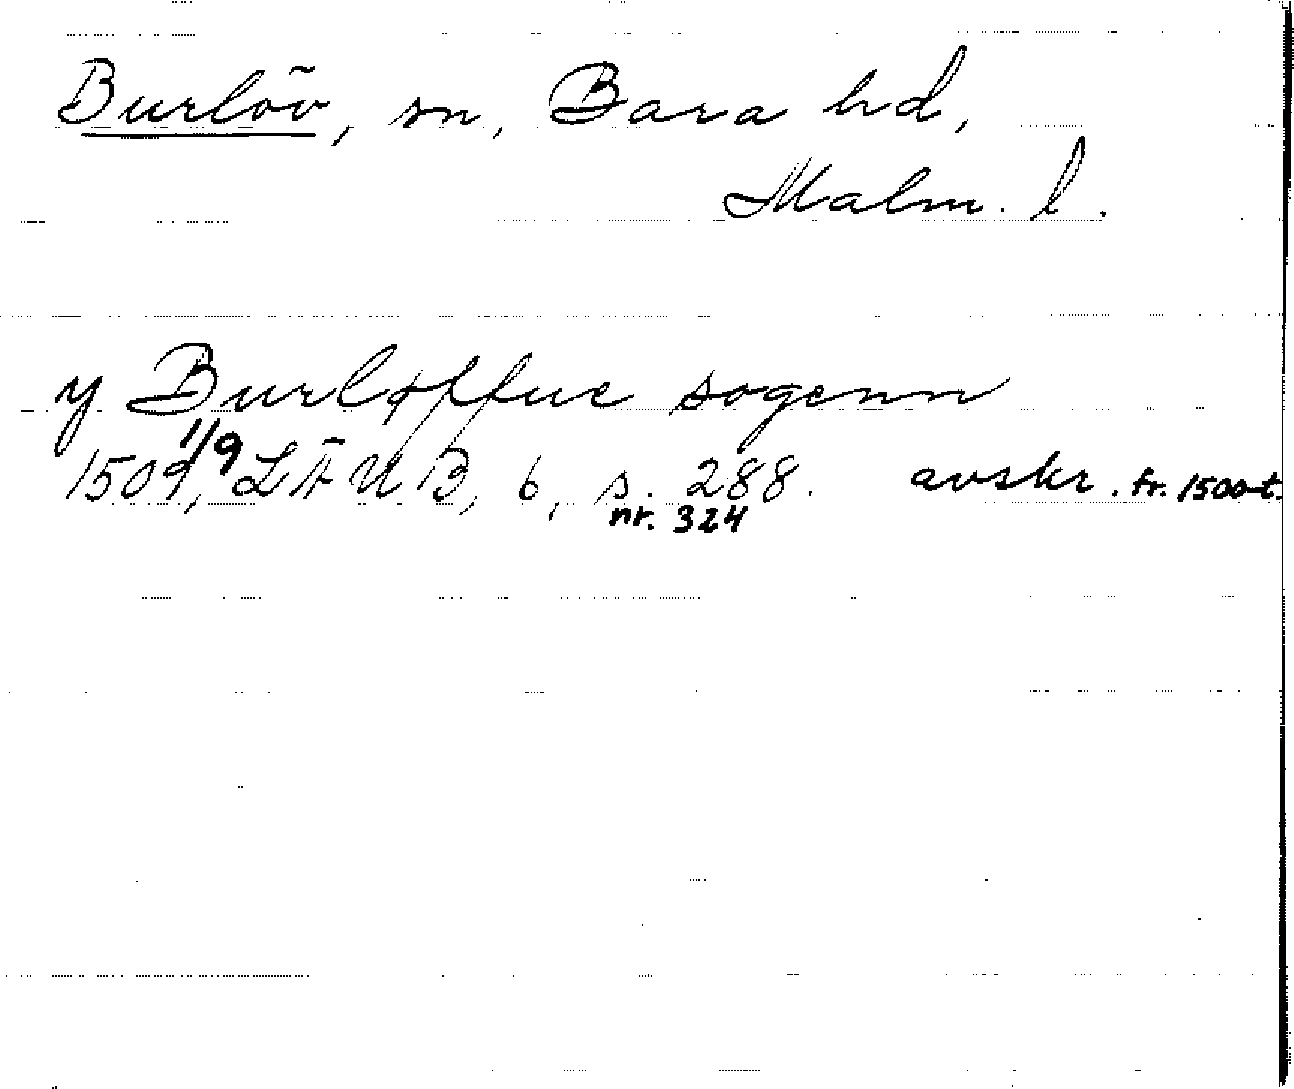 Burlöv, sn, Bara hd,
Malm. l.
y Burløffue sogenn
1509 1/9, LÄUB, 6, s. 288. avskr. fr. 1500-t.
nr. 324